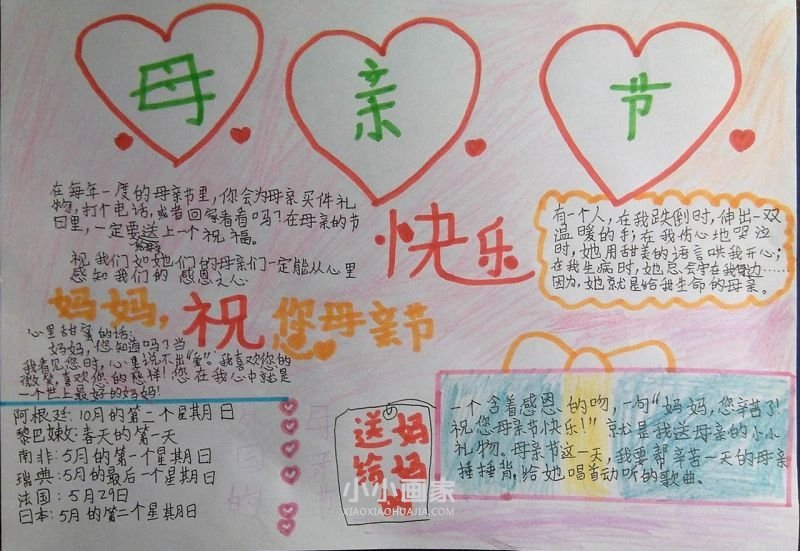 母
亲
节
在每年一度的母亲节里，你会为母亲买件礼
物，打个电话，或者回家看看吗？在母亲的节
日里，一定要送上一个祝福。
祝我们如她们的母亲们一定能从心里
感知我们的感恩之心
快乐
有一个人，在我跌倒时，伸出一双
温暖的手；在我伤心地哭泣
时，她用甜美的语言哄我开心；
在我生病时，她总会守在我身边……
因为，她就是给我生命的母亲。
妈妈，祝您母亲节
心里甜蜜的话：
妈妈，您知道吗？当
我看见您时，心里说不出“爱”。我喜欢您的
微笑，喜欢您的慈祥！您在我心中就是
一个世上最好的妈妈！
阿根廷：10月的第二个星期日
黎巴嫩：春天的第一天
南非：5月的第一个星期日
瑞典：5月的最后一个星期日
法国：5月29日
日本：5月的第二个星期日
送给
妈妈
一个含着感恩的吻，一句“妈妈，您辛苦了！
祝您母亲节快乐！”就是我送母亲的小小
礼物。母亲节这一天，我要帮辛苦一天的母亲
捶捶背，给她唱首动听的歌曲。
小小画家
XIAOXIAOHUAJIA.COM